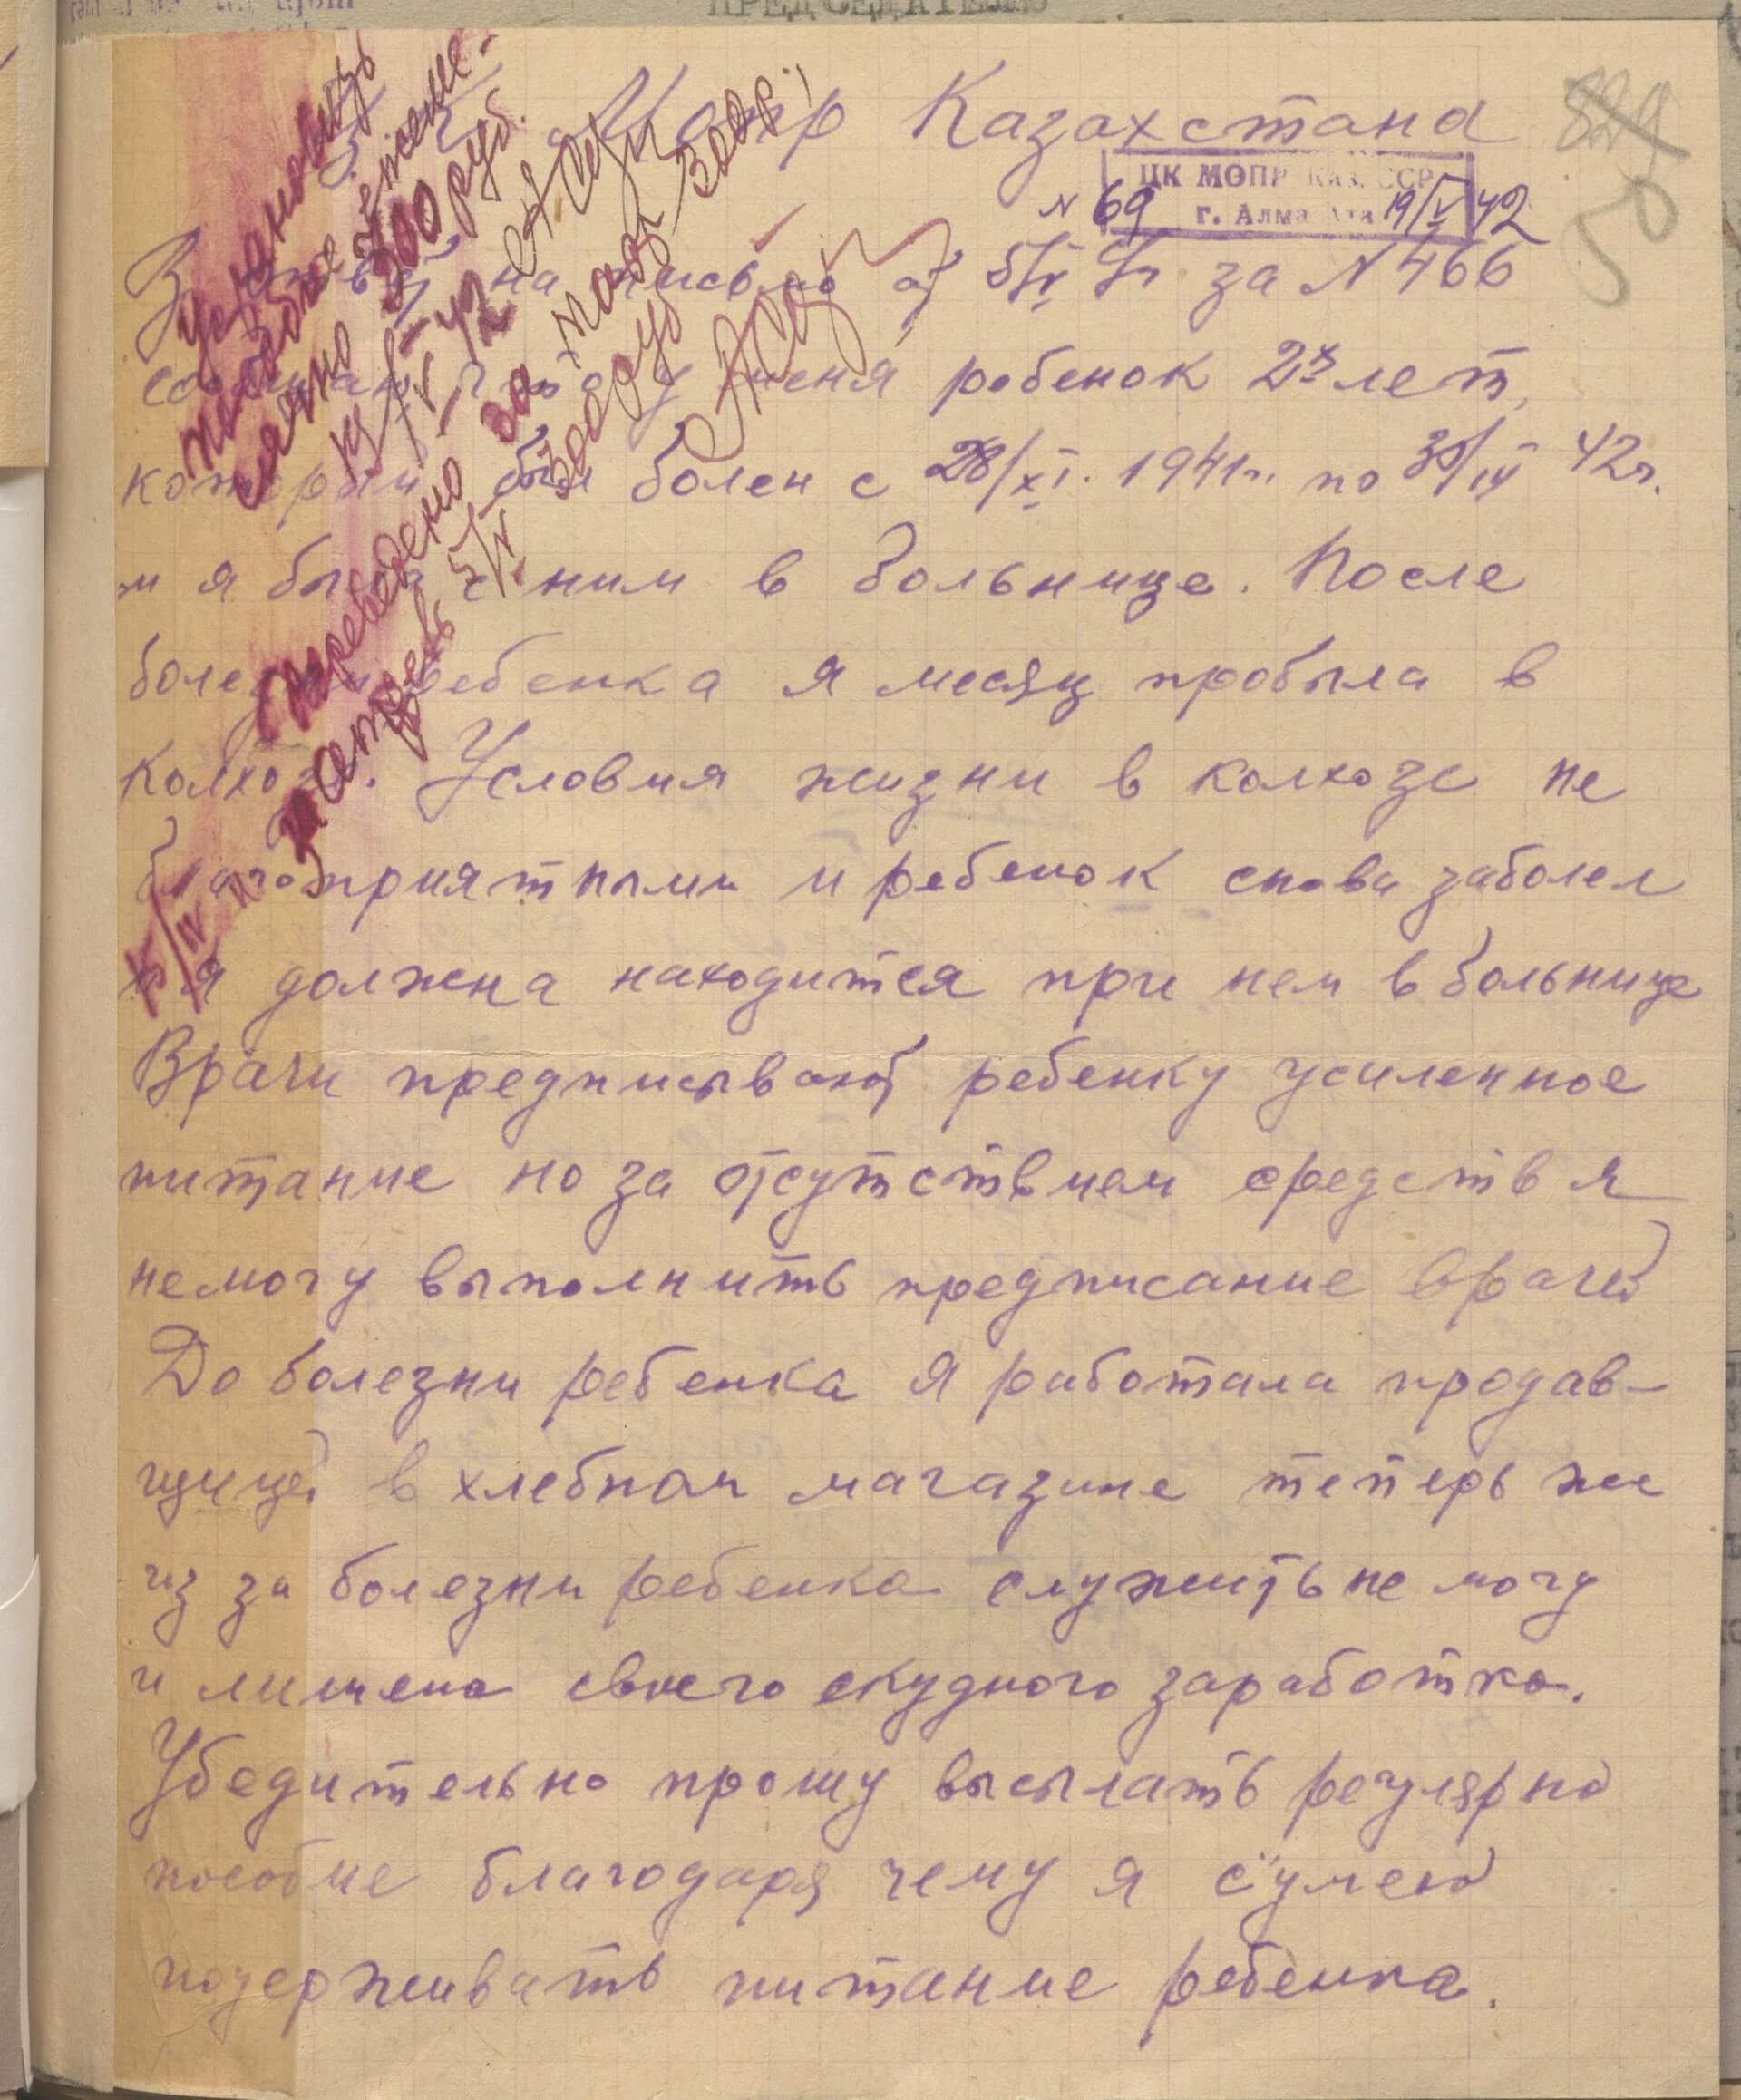 ПРЕДСЕДАТЕЛЮ
Ц. К. Мопр Казахстана
529
50
ЦК МОПР Каз. ССР
г. Алма Ата
№ 69 19/V 42
В ответ на письмо от 5/V г. за № 466
сообщаю, что у меня ребенок 2х лет,
который был болен с 28/XI. 1941г. по 30/III 42г.
и я была с ним в больнице. После
болезни ребенка я месяц пробыла в
колхозе. Условия жизни в колхозе не
благоприятными и ребенок снова заболел
и я должна находится при нем в больнице
Врачи предписывают ребенку усиленное
питание но за отсутствием средств я
немогу выполнить предписание врачей
До болезни ребенка я работала продав-
щицей в хлебном магазине теперь же
из за болезни ребенка служить не могу
и лишена своего скудного заработка.
Убедительно прошу высылать регулярно
пособие благодаря чему я сумею
подерживать питание ребенка.
Установить
пособие ежеме-
сячно 300 руб.
19/V-42
Переведено за май 300 р.
5/V 300 руб